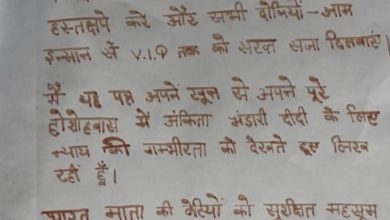 हस्तक्षेप करे और सभी दोषियों - आम
इन्सान से V.I.P तक को सख्त सजा दिलवाएं।
मैं यह पत्र अपने खून से अपने पूरे
होशोहवास में अंकिता भंडारी दीदी के लिए
न्याय की गम्भीरता को देखते हुए लिख
रहीं हूँ।
भारत माता की बेटियों को सुरक्षित महसूस